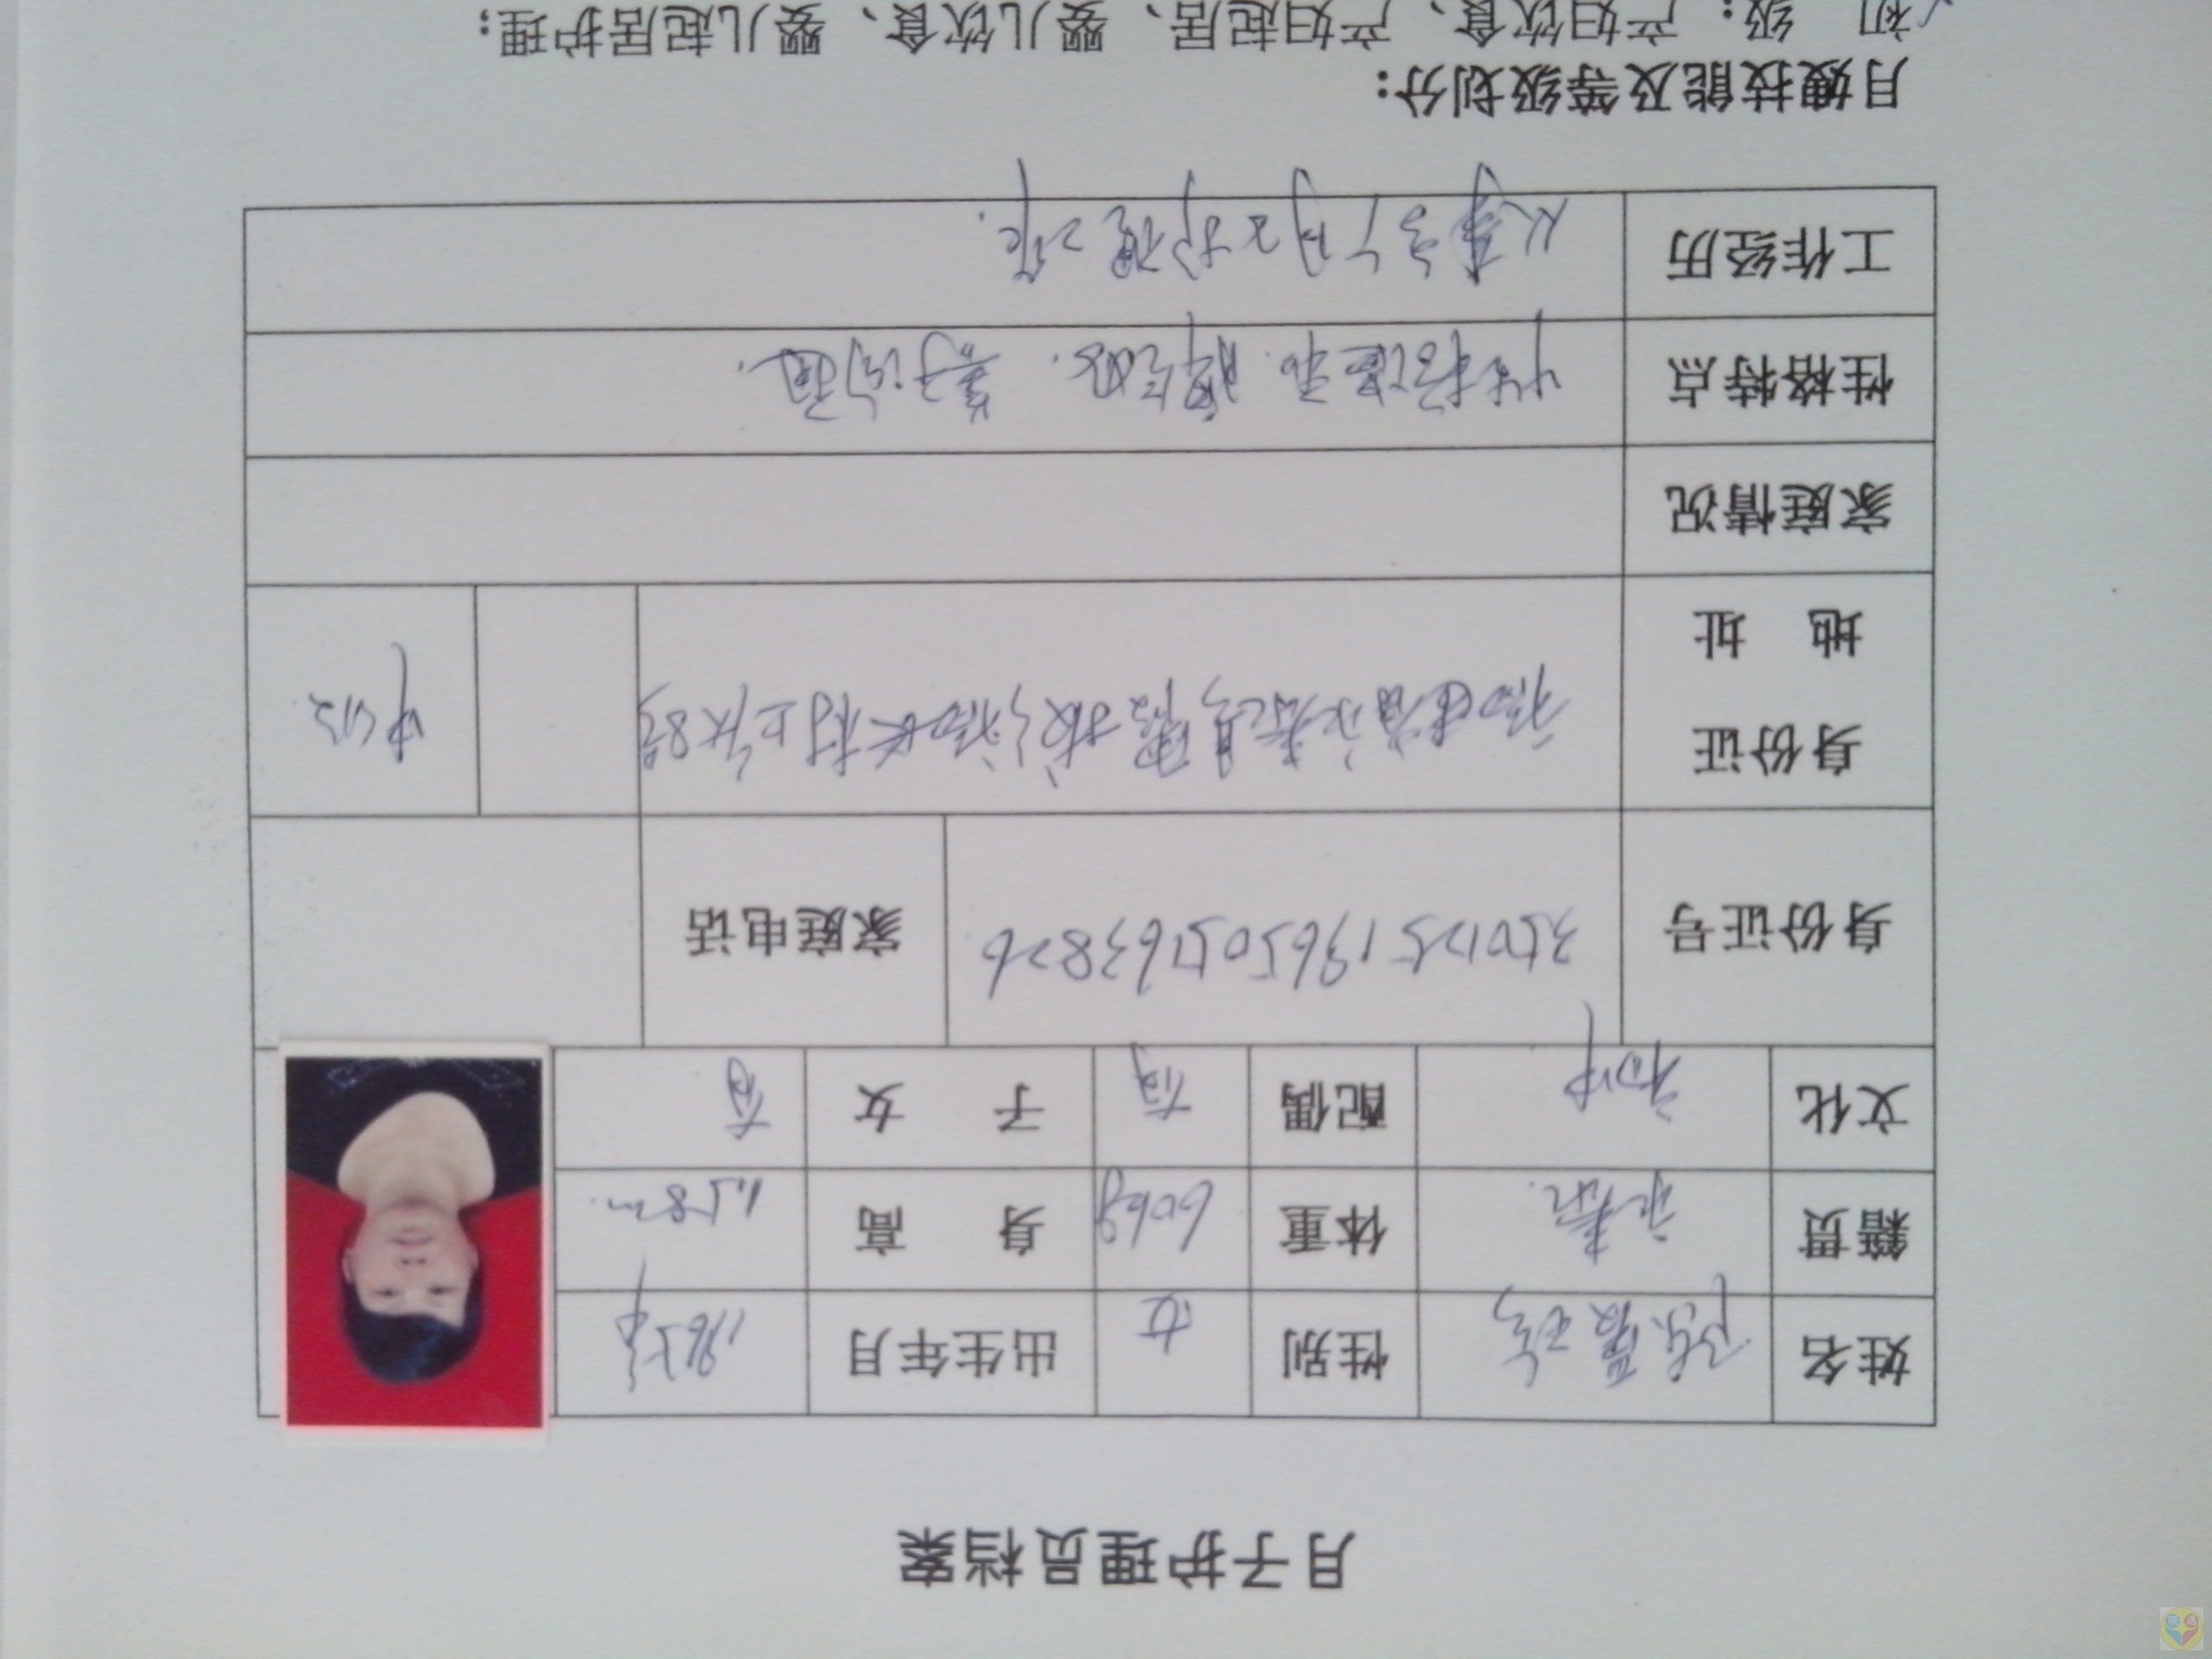 月子护理员档案
姓名 陈 性别 女 出生年月 1965年
籍贯 永泰 体重 60kg 身高 1.58m
文化 初中 配偶 有 子女 有
身份证号 家庭电话
身份证地址 福建省永泰县霞拔乡福长村上 8号 中级
家庭情况
性格特点 性格温和. 善于沟通.
工作经历 从事多个月子护理工作.
月嫂技能及等级划分:
初 级: 产妇饮食、产妇起居、婴儿饮食、婴儿起居护理;